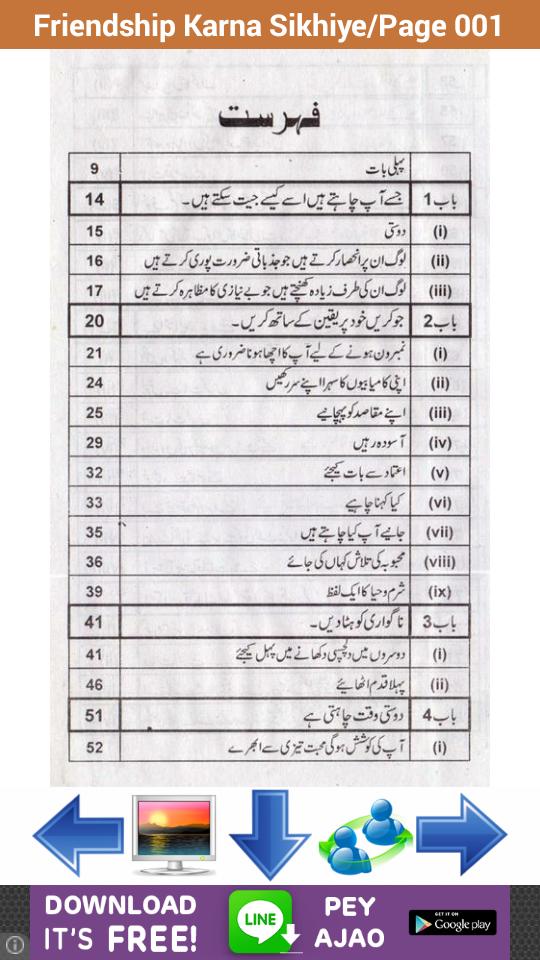 Friendship Karna Sikhiye/Page 001
فہرست
پہلی بات 9
باب 1 جسے آپ چاہتے ہیں اسے کیسے جیت سکتے ہیں۔ 14
(i) دوستی 15
(ii) لوگ ان پر انحصار کرتے ہیں جو جذباتی ضرورت پوری کرتے ہیں 16
(iii) لوگ ان کی طرف زیادہ کھنچتے ہیں جو بے نیازی کا مظاہرہ کرتے ہیں 17
باب 2 جو کریں خود پر یقین کے ساتھ کریں۔ 20
(i) نمبرون ہونے کے لیے آپ کا اچھا ہونا ضروری ہے 21
(ii) اپنی کامیابیوں کا سہرا اپنے سر رکھیں 24
(iii) اپنے مقاصد کو پہچانیے 25
(iv) آسودہ رہیں 29
(v) اعتماد سے بات کیجئے 32
(vi) کیا کہنا چاہیے 33
(vii) جانیے آپ کیا چاہتے ہیں 35
(viii) محبوبہ کی تلاش کہاں کی جائے 36
(ix) شرم و حیا کا ایک لفظ 39
باب 3 ناگواری کو ہٹا دیں۔ 41
(i) دوسروں میں دلچسپی دکھانے میں پہل کیجئے 41
(ii) پہلا قدم اٹھائیے 46
باب 4 دوستی وقت چاہتی ہے 51
(i) آپ کی کوشش ہوگی محبت تیزی سے ابھرے 52
DOWNLOAD
IT'S FREE!
LINE
PEY
AJAO
GET IT ON
Google play